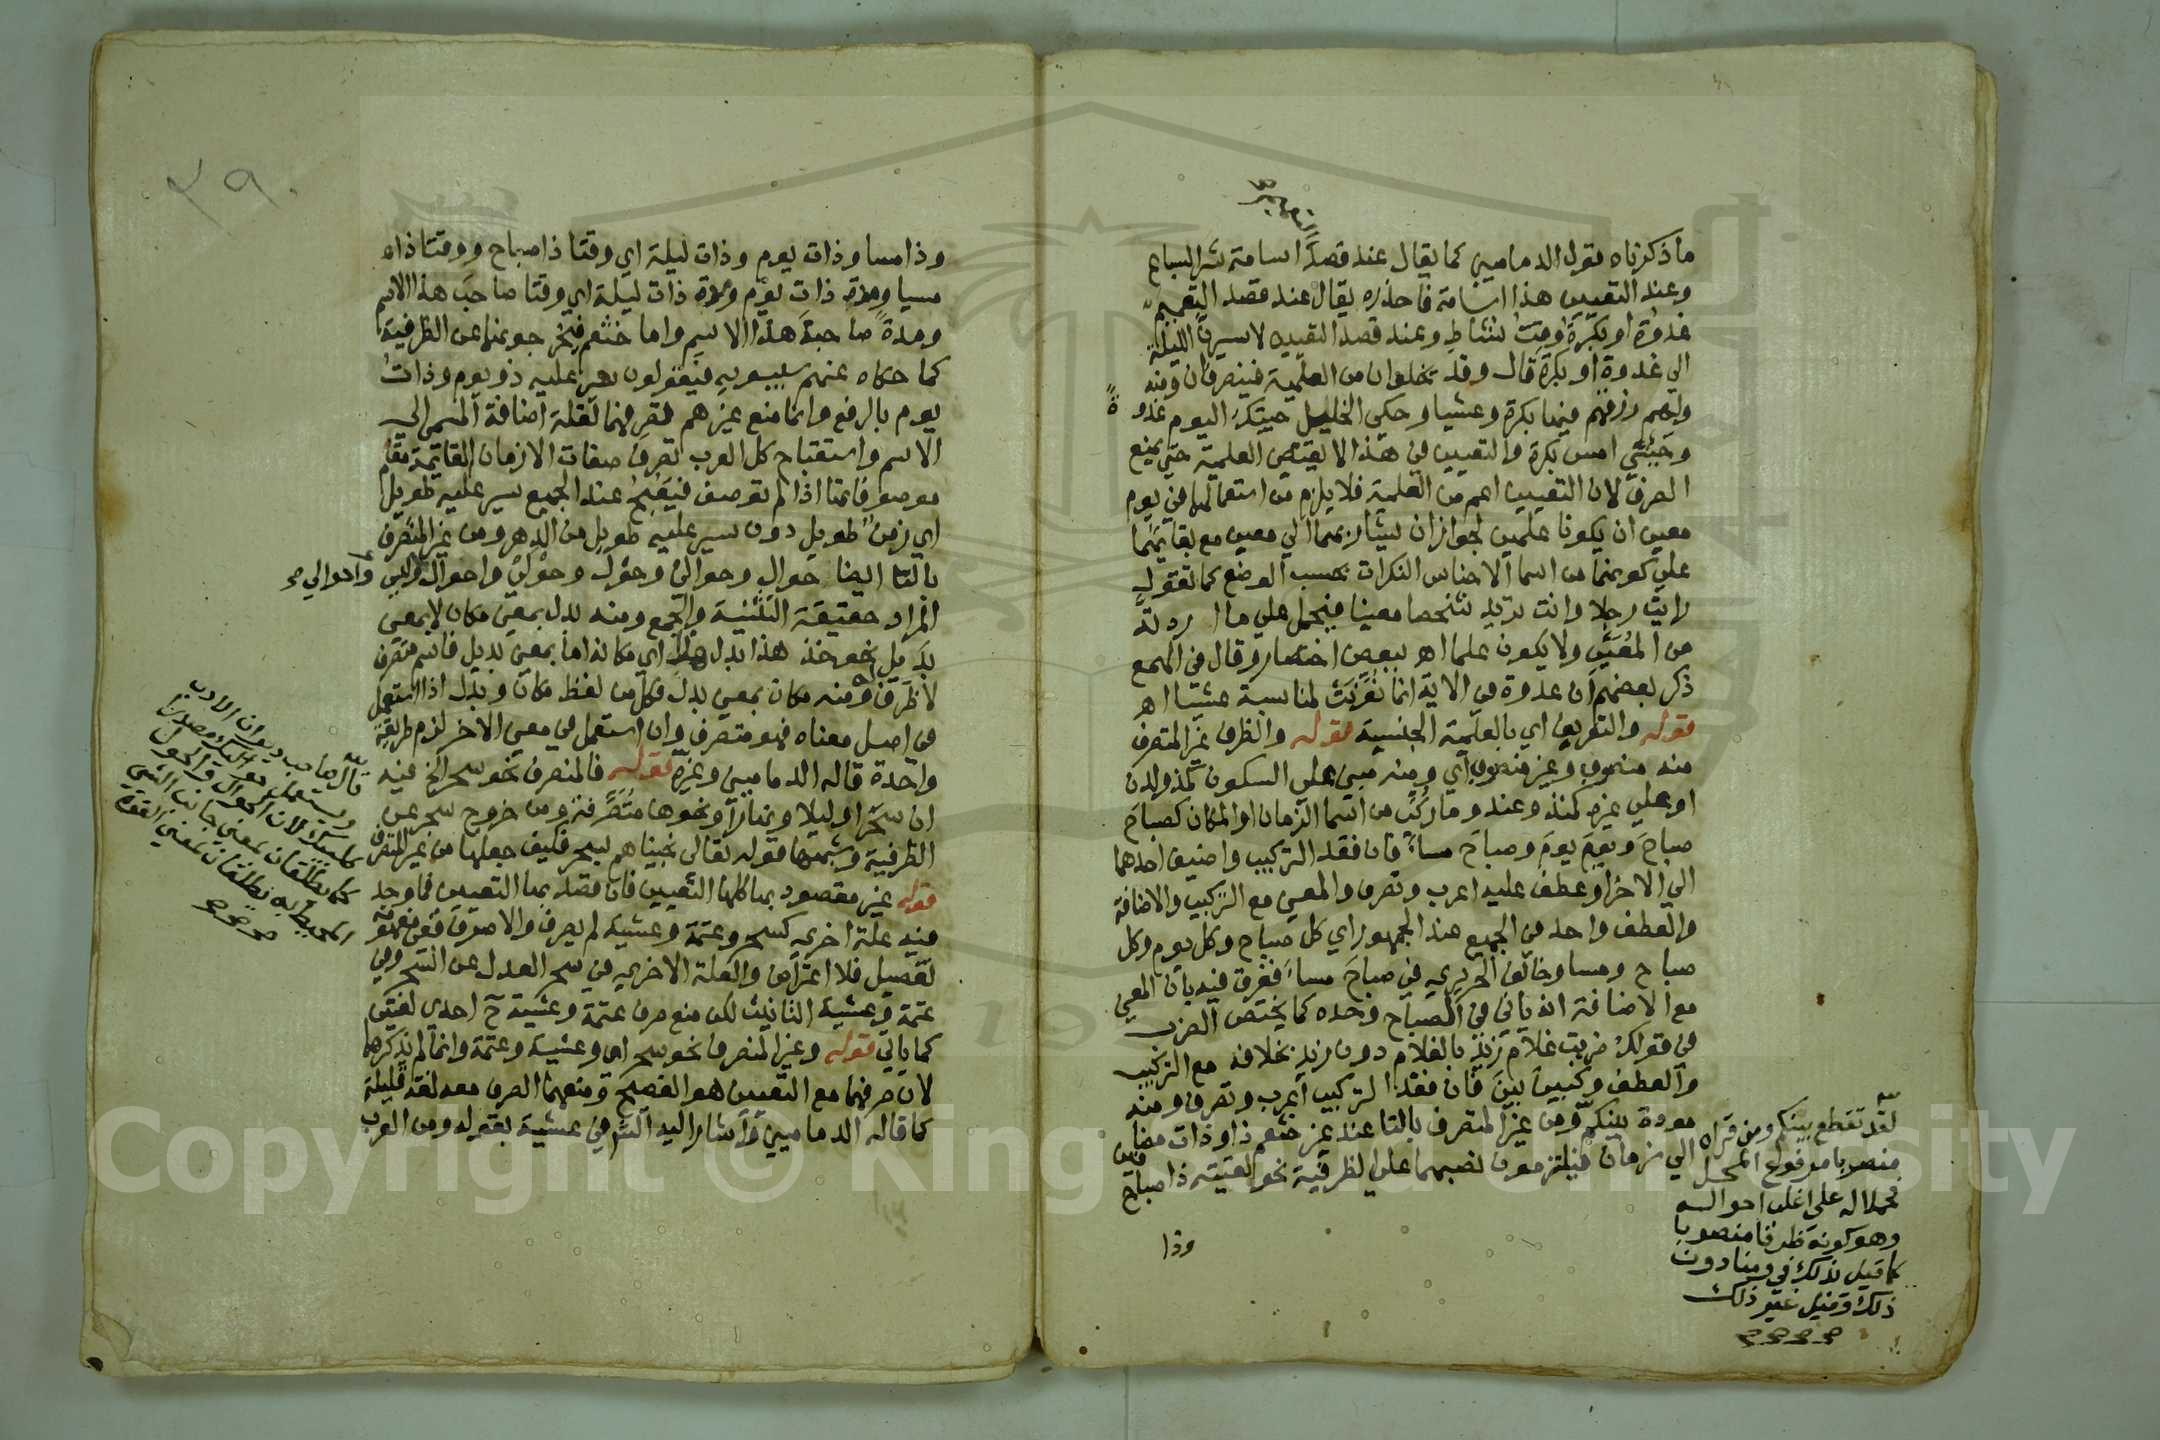 ما ذكرناه بقول الدماميني كما يقال عند قصد اسامة شر السباع
وعند التعيين هذا اسامة فاحذره يقال عند قصد التعميم
غدوة او بكرة وقت نشاط وعند قصد التقييد لاسيرن الليلة
الي غدوة او بكرة قال وقد تخلوان من العلمية فينصرفان ومنه
ولهم رزقهم فيها بكرة وعشيا وحكي الخليل جيتك اليوم غدوة
وجيتني امس بكرة والتعيين في هذا لا يقتضي العلمية حتي يمنع
الصرف لان التعيين اعم من العلمية فلا يلزم من استعمالها في يوم
معين ان يكونا علمين لجواز ان يشار بهما الي معين مع بقايهما
علي كونهما من اسما الاجناس النكرات بحسب الوضع كما تقول
رايت رجلا وانت تريد شخصا معينا فيحمل علي ما اردته
من المعين ولا يكون علما اهـ ببعض اختصار وقال في الهمع
ذكر بعضهم ان غدوة في الاية انما نونت لمناسبة عشيا اهـ
قوله والتعريف اي بالعلمية الجنسية قوله والظرف غير المتصرف
منه منصوب وغير منصوب اي ومنه مبني علي السكون كمذ ولدن
او علي غيره كمنذ وعند وما ركب من اسما الزمان او المكان كصباح
صباح ويوم يوم وصباح مساء فان فقد التركيب واضيف احدهما
الي الاخر او عطف عليه اعرب وتصرف والمعني مع التركيب والاضافة
والعطف واحد في الجميع عند الجمهور اي كل صباح وكل يوم وكل
صباح ومسا وخالف الحريري في صباح مساء ففرق فيه بان المعني
مع الاضافة انه ياتي في الصباح وحده كما يختص الضرب
في قولك ضربت غلام زيد بالغلام دون زيد بخلافه مع التركيب
والعطف وكبين بين فان فقد التركيب اعرب وتصرف ومنه
مودة بينكم ومن غير المتصرف بالتا عند غير خثعم ذا وذات مضافين
الي زمان فيلتزمون نصبهما علي الظرفية نحو لقيته ذا صباح
وذا
لقد تقطع بينكم ومن قراه
منصوبا مرفوع المحل
حملا له علي اغلب احواله
وهو كونه ظرفا منصوبا
كما قيل بذلك في ومنا دون
ذلك وقيل غير ذلك
٢٩٠
وذا مسا وذات يوم وذات ليلة اي وقتا ذا صباح ووقتا ذا
مسا ومدة ذات يوم ومدة ذات ليلة اي وقتا صاحب هذا الاسم
ومدة صاحبة هذا الاسم واما خثعم فيخرجونهما عن الظرفية
كما حكاه عنهم سيبويه فيقولون سير عليه ذو يوم وذات
يوم بالرفع وانما منع غيرهم تصرفهما لقلة اضافة المسمي الي
الاسم واستقباح كل العرب تصرف صفات الازمان القائمة مقام
موصوفاتها اذا لم توصف فيقبح عند الجميع سير عليه طويل
اي زمن طويل دون سير عليه طويل من الدهر ومن غير المتصرف
بالتا ايضا حوال وحوالي وحول وحولي واحوال وليس واحوالي
المراد حقيقة التثنية والجمع ومنه بدل بمعني مكان لا بمعني
بديل نحو خذ هذا بدل هذا اي مكانه اما بمعني بديل فاسم متصرف
لا ظرف ومنه مكان بمعني بدل فكل من لفظ مكان وبدل اذا استعمل
في اصل معناه فهو متصرف وان استعمل في معني الاخر لزم طريقة
واحدة قاله الدماميني وغيره قوله فالمنصرف نحو سحر الخ فيه
ان سحر او ليلا ونهارا ونحوها متصرفة ومن خروج سحر عن
الظرفية وشبهها قوله تعالي نجيناهم بسحر فكيف جعلها من غير المتصرف
قوله غير مقصود بها كلها التعيين فان قصد بها التعيين فما وجد
فيه علة اخري كسحر وعتمة وعشية لم يصرف والا صرف ففي مفهومه
تفصيل فلا اعتراض والعلة الاخري في سحر العدل عن السحر وفي
عتمة وعشية التانيث لكن منع صرف عتمة وعشية ح احدي لغتين
كما ياتي قوله وغير المنصرف نحو سحر اي وعشية وعتمة وانما لم يذكرهما
لان صرفهما مع التعيين هو الفصيح ومنعهما الصرف معه لغة قليلة
كما قاله الدماميني واشار اليه الش في عشية بقوله ومن العرب
قال صاحب ديوان الادب
كما يطلقان بمعني جانب الشي
المحيط به يطلقان بمعني القوة
Copyright © King Saud University